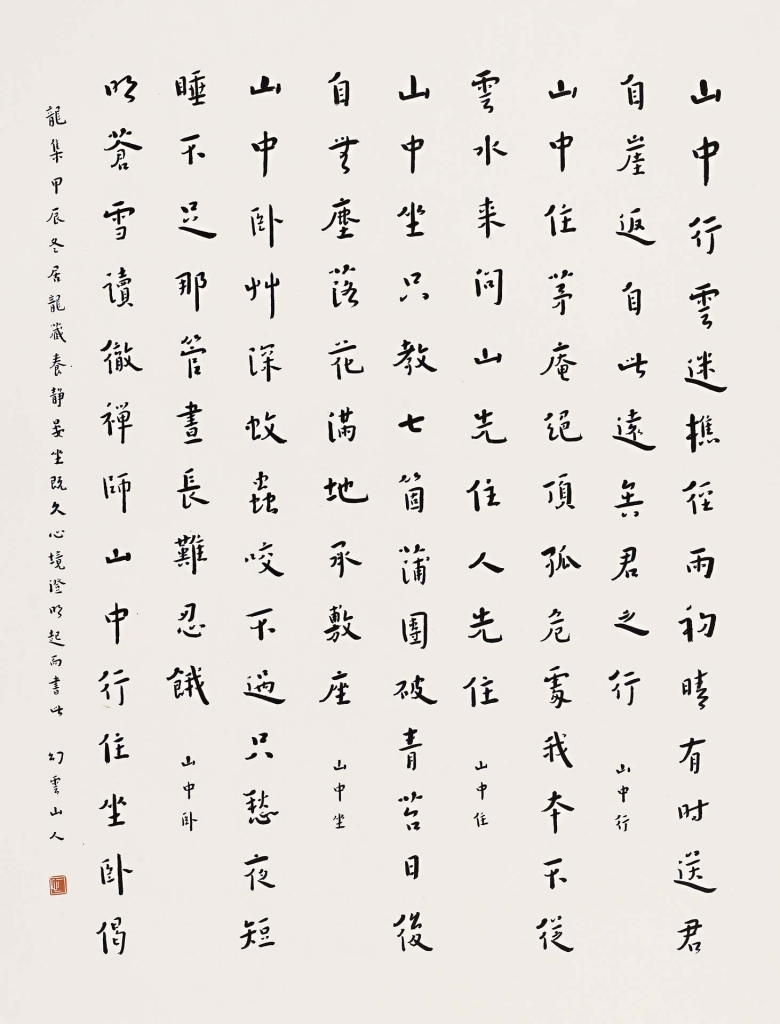 山中行雲迷樵径雨初晴有时送君
自崖返自此遠無君之行 山中行
山中住茅庵絕頂孤危處我本不從
雲水来問山先住人先住 山中住
山中坐只教七箇蒲團破青苔日後
自無塵落花滿地承敷座 山中坐
山中卧艸深蚊蟲咬不過只愁夜短
睡不足那管晝長難忍餓 山中卧
明蒼雪讀徹禅師山中行住坐卧偈
龍集甲辰冬居龍藏養静晏坐既久心境澄明起而書此 幻雲山人